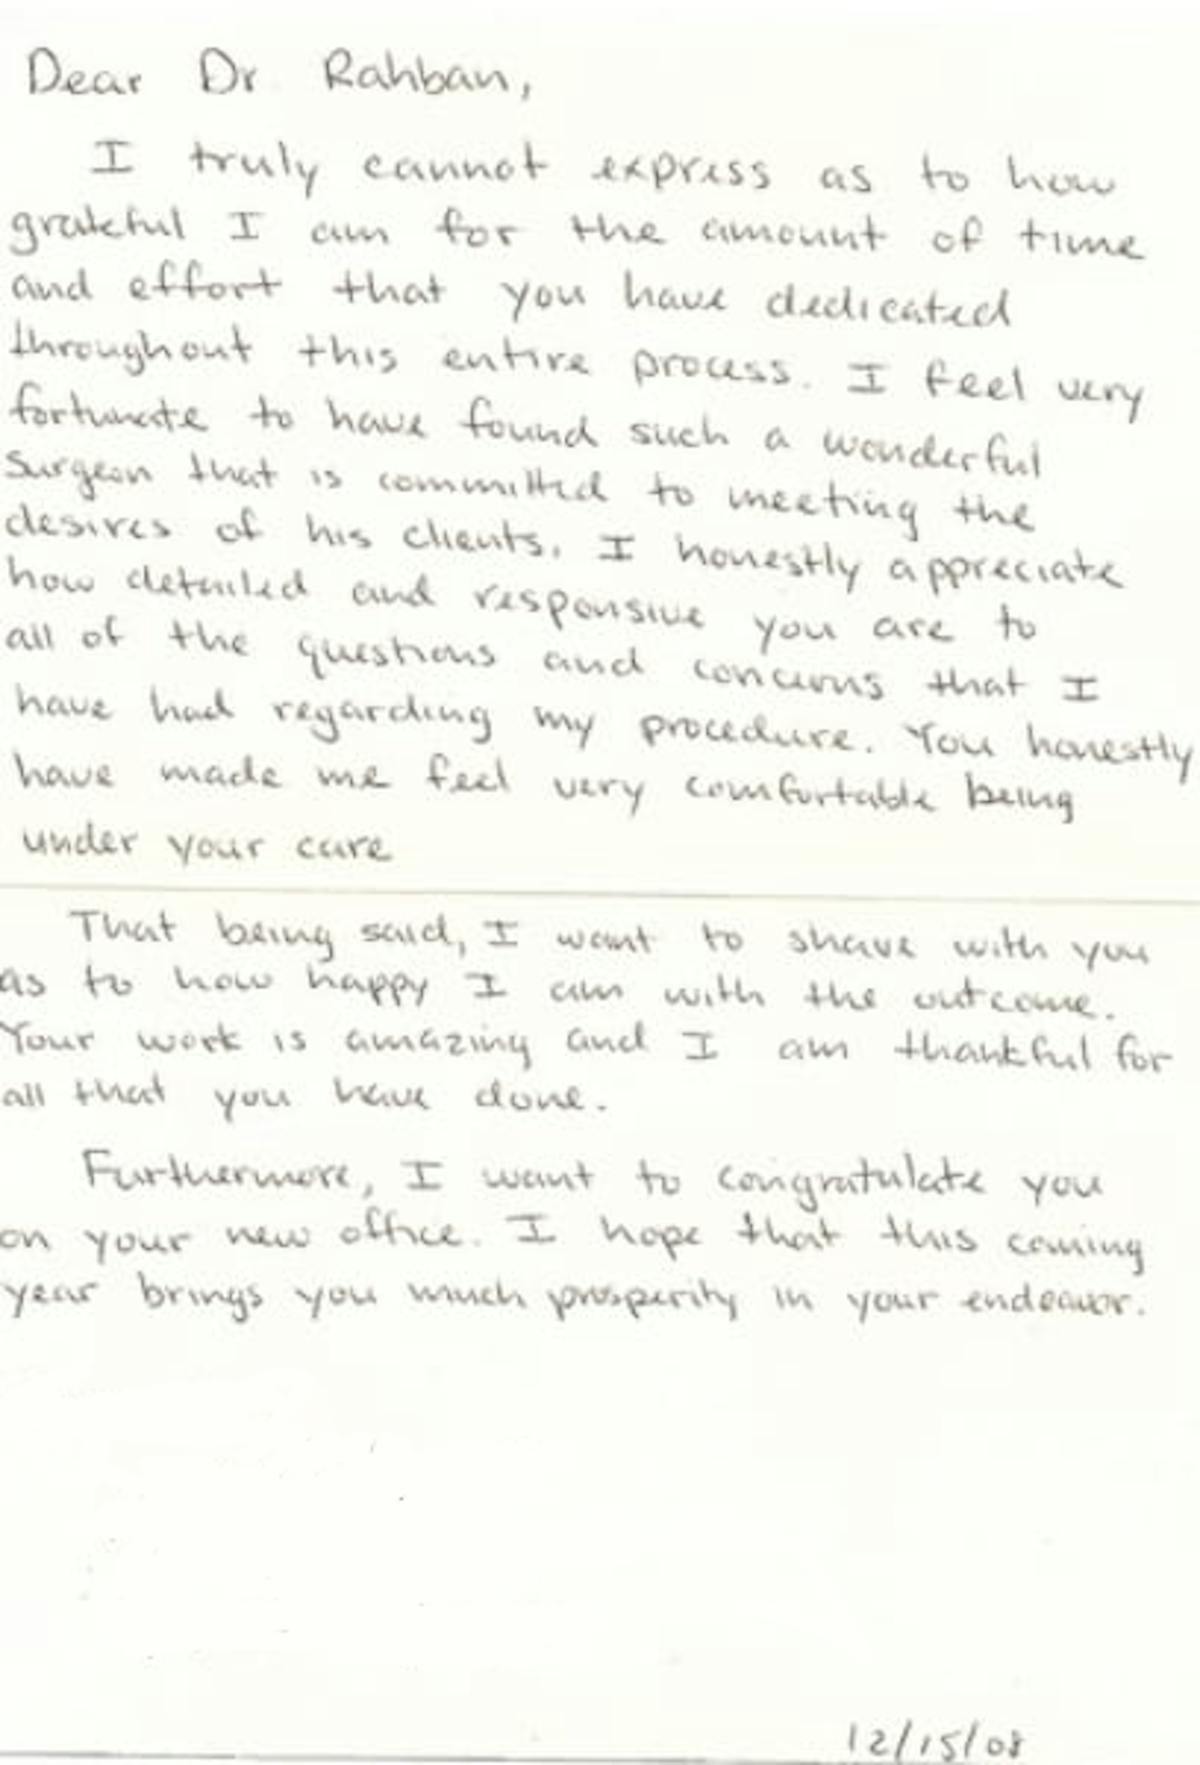 Dear Dr. Rahban,
I truly cannot express as to how
grateful I am for the amount of time
and effort that you have dedicated
throughout this entire process. I feel very
fortunate to have found such a wonderful
surgeon that is committed to meeting the
desires of his clients. I honestly appreciate
how detailed and responsive you are to
all of the questions and concerns that I
have had regarding my procedure. You honestly
have made me feel very comfortable being
under your care
That being said, I want to share with you
as to how happy I am with the outcome.
Your work is amazing and I am thankful for
all that you have done.
Furthermore, I want to congratulate you
on your new office. I hope that this coming
year brings you much prosperity in your endeavor.
12/15/08